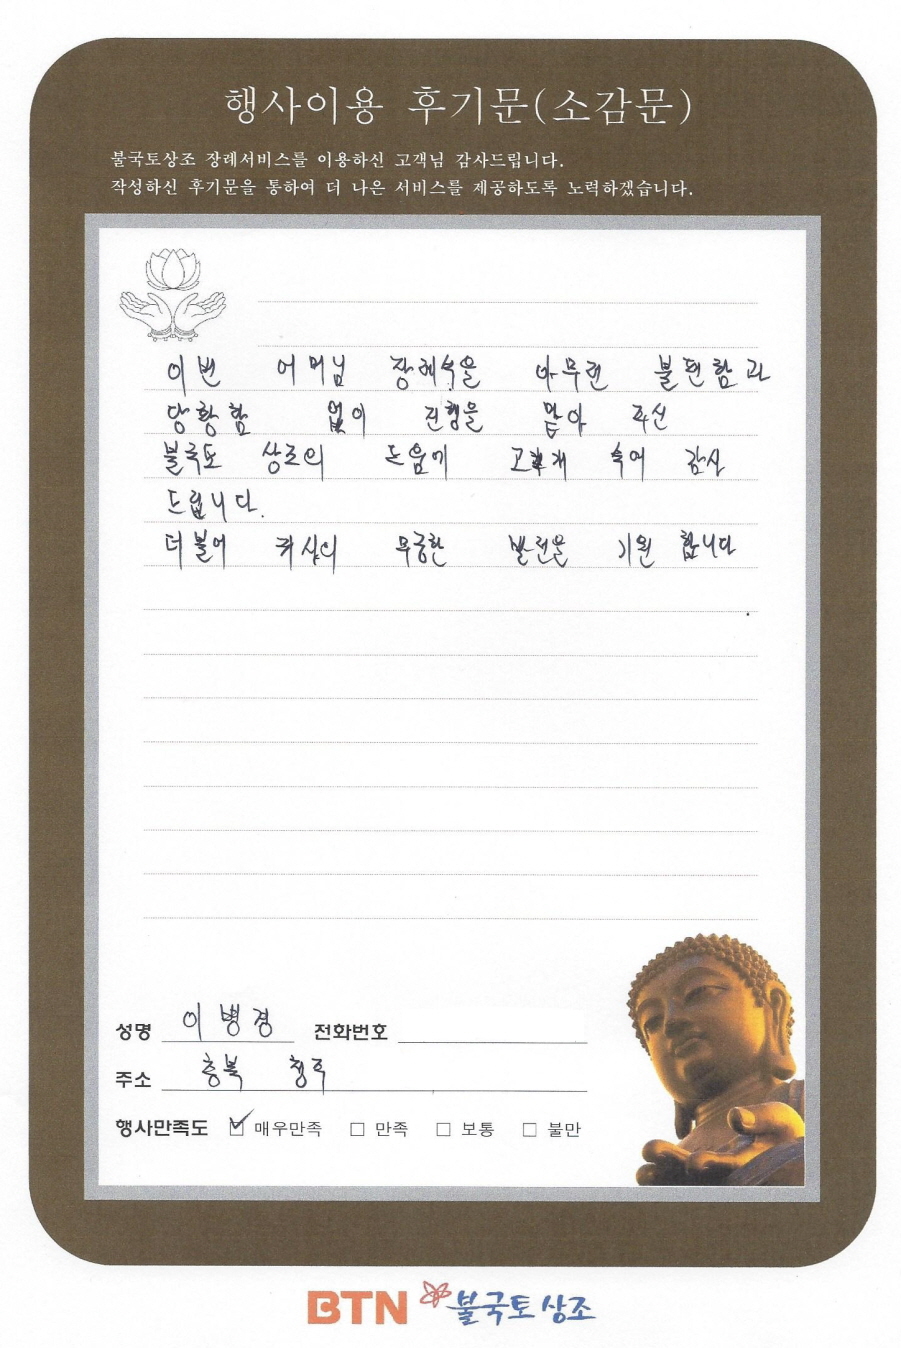 행사이용 후기문(소감문)
불국토상조 장례서비스를 이용하신 고객님 감사드립니다.
작성하신 후기문을 통하여 더 나은 서비스를 제공하도록 노력하겠습니다.
이번 어머님 장례식을 아무런 불편함과
당황함 없이 진행을 맡아 주신
불국토 상조의 도움에 고개 숙여 감사
드립니다.
더불어 귀사의 무궁한 발전을 기원 합니다
성명 이병경 전화번호
주소 충북 청주
행사만족도 ☑ 매우만족 □ 만족 □ 보통 □ 불만
BTN 불국토상조